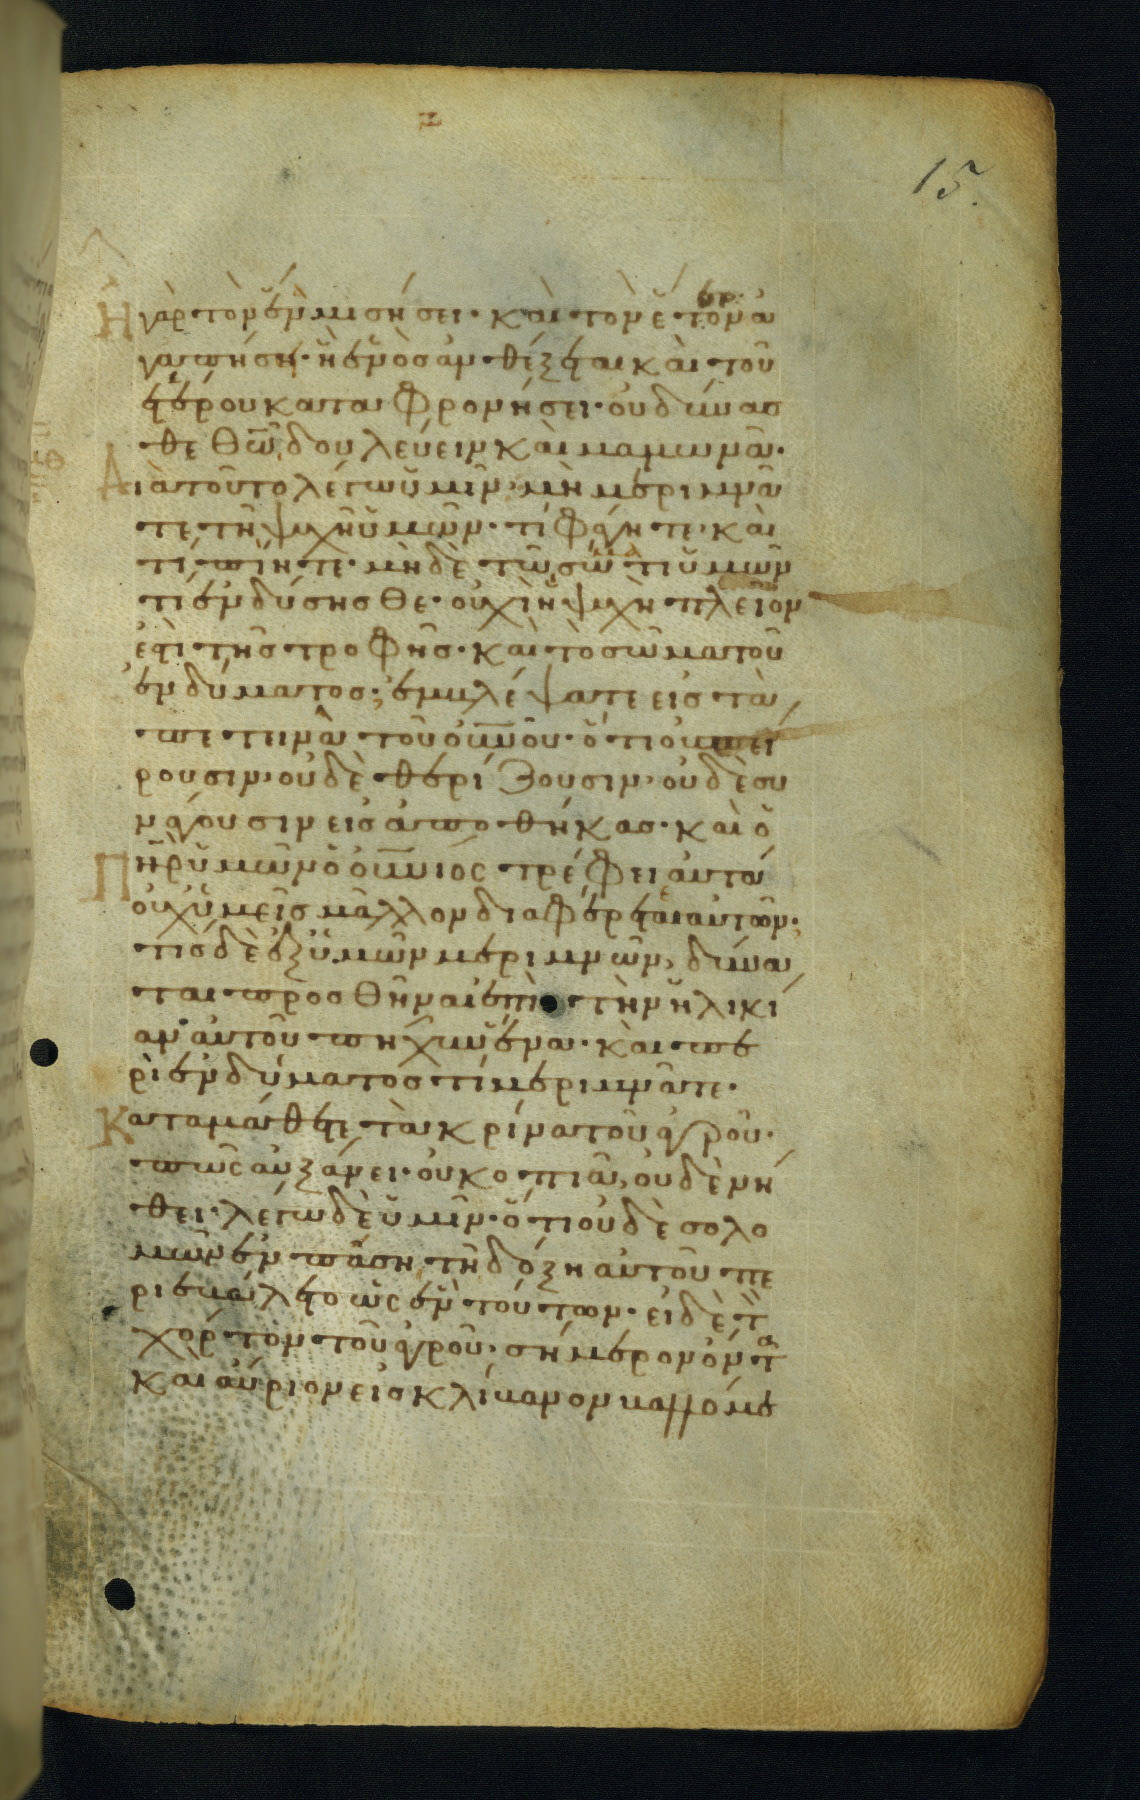 15.
Ἢ γὰρ τὸν ἕνα μισήσει· καὶ τὸν ἕτερον ἀ
γαπήσῃ· ἢ ἑνὸς ἀνθέξεται καὶ τοῦ
ἑτέρου καταφρονήσει· οὐ δύνασ
θε θῶ δουλεύειν καὶ μαμωνᾶ·
Διὰ τοῦτο λέγω ὑμῖν· μὴ μεριμνᾶ
τε τῇ ψυχῇ ὑμῶν· τί φάγητε· καὶ
τί πίητε· μηδὲ τῷ σώματι ὑμῶν
τί ἐνδύσησθε· οὐχὶ ἡ ψυχὴ πλεῖον
ἐστι τῆς τροφῆς· καὶ τὸ σῶμα τοῦ
ἐνδύματος; ἐμβλέψατε εἰς τὰ
πετεινὰ τοῦ οὐνοῦ· ὅτι οὐ σπεί
ρουσιν· οὐδὲ θερίζουσιν· οὐδὲ συ
νάγουσιν εἰς ἀποθήκας· καὶ ὁ
Πηρ ὑμῶν ὁ οὐνιος τρέφει αὐτά
οὐχ ὑμεῖς μᾶλλον διαφέρετε αὐτῶν·
τίς δὲ ἐξ ὑμῶν μεριμνῶν, δύνα
ται προσθῆναι ἐπὶ τὴν ἡλικί
αν αὐτοῦ πῆχυν ἕνα· καὶ πε
ρὶ ἐνδύματος τί μεριμνᾶτε·
Καταμάθετε τὰ κρίνα τοῦ ἀγροῦ·
πῶς αὐξάνει· οὐ κοπιᾶ, οὐδὲ νή
θει· λέγω δὲ ὑμῖν· ὅτι οὐδὲ σολο
μὼν ἐν πάσῃ τῇ δόξῃ αὐτοῦ πε
ριεβάλετο ὡς ἓν τούτων· εἰ δὲ τὸ
χόρτον τοῦ ἀγροῦ· σήμερον ὄντα
καὶ αὔριον εἰς κλίβανον βαλλόμε